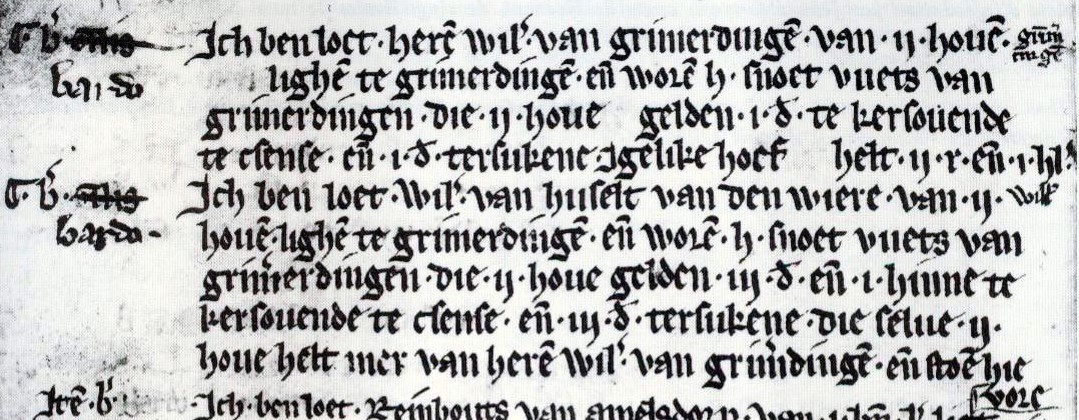 Ich ben loet · herē wil᾽ · van grimerdingē · van · ij · houē ·
lighē te grimerdingē · eñ worē h · snoet vuets van
grimerdingen · die · ij · houe gelden · i · đ · te kersouende
te chense · eñ · i · đ · tersukene · Igelike hoef helt · ij · r · eñ · i · hl᾽
Ich ben loet · wil᾽ · van huselt van den wiere · van · ij ·
bardo · houē · lighē te grimerdingē · eñ worē · h · snoet vuets van
grimerdingen · die · ij · houe gelden · iij · đ · eñ · i · hinne te
kersouende te chense · eñ · iij · đ · tersukene · die selue · ij ·
houe helt mer van herē wil᾽ · van grimdingē · eñ stoē hie
vore
Itē · b᾽ Ich · ben loet · Reinbouts van